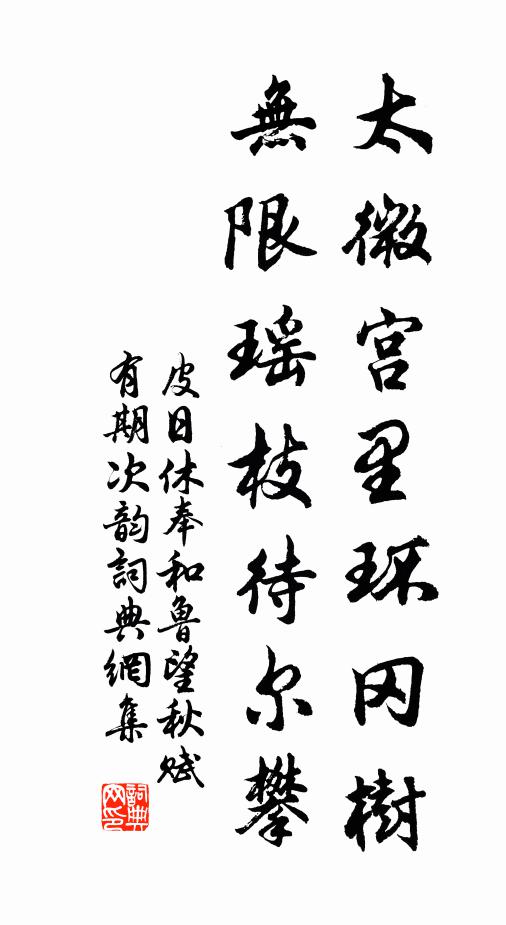 太微宫里环冈樹
無限瑶枝待尔攀
皮日休奉和魯望秋赋
有期次韵詞典網集
詞典网印